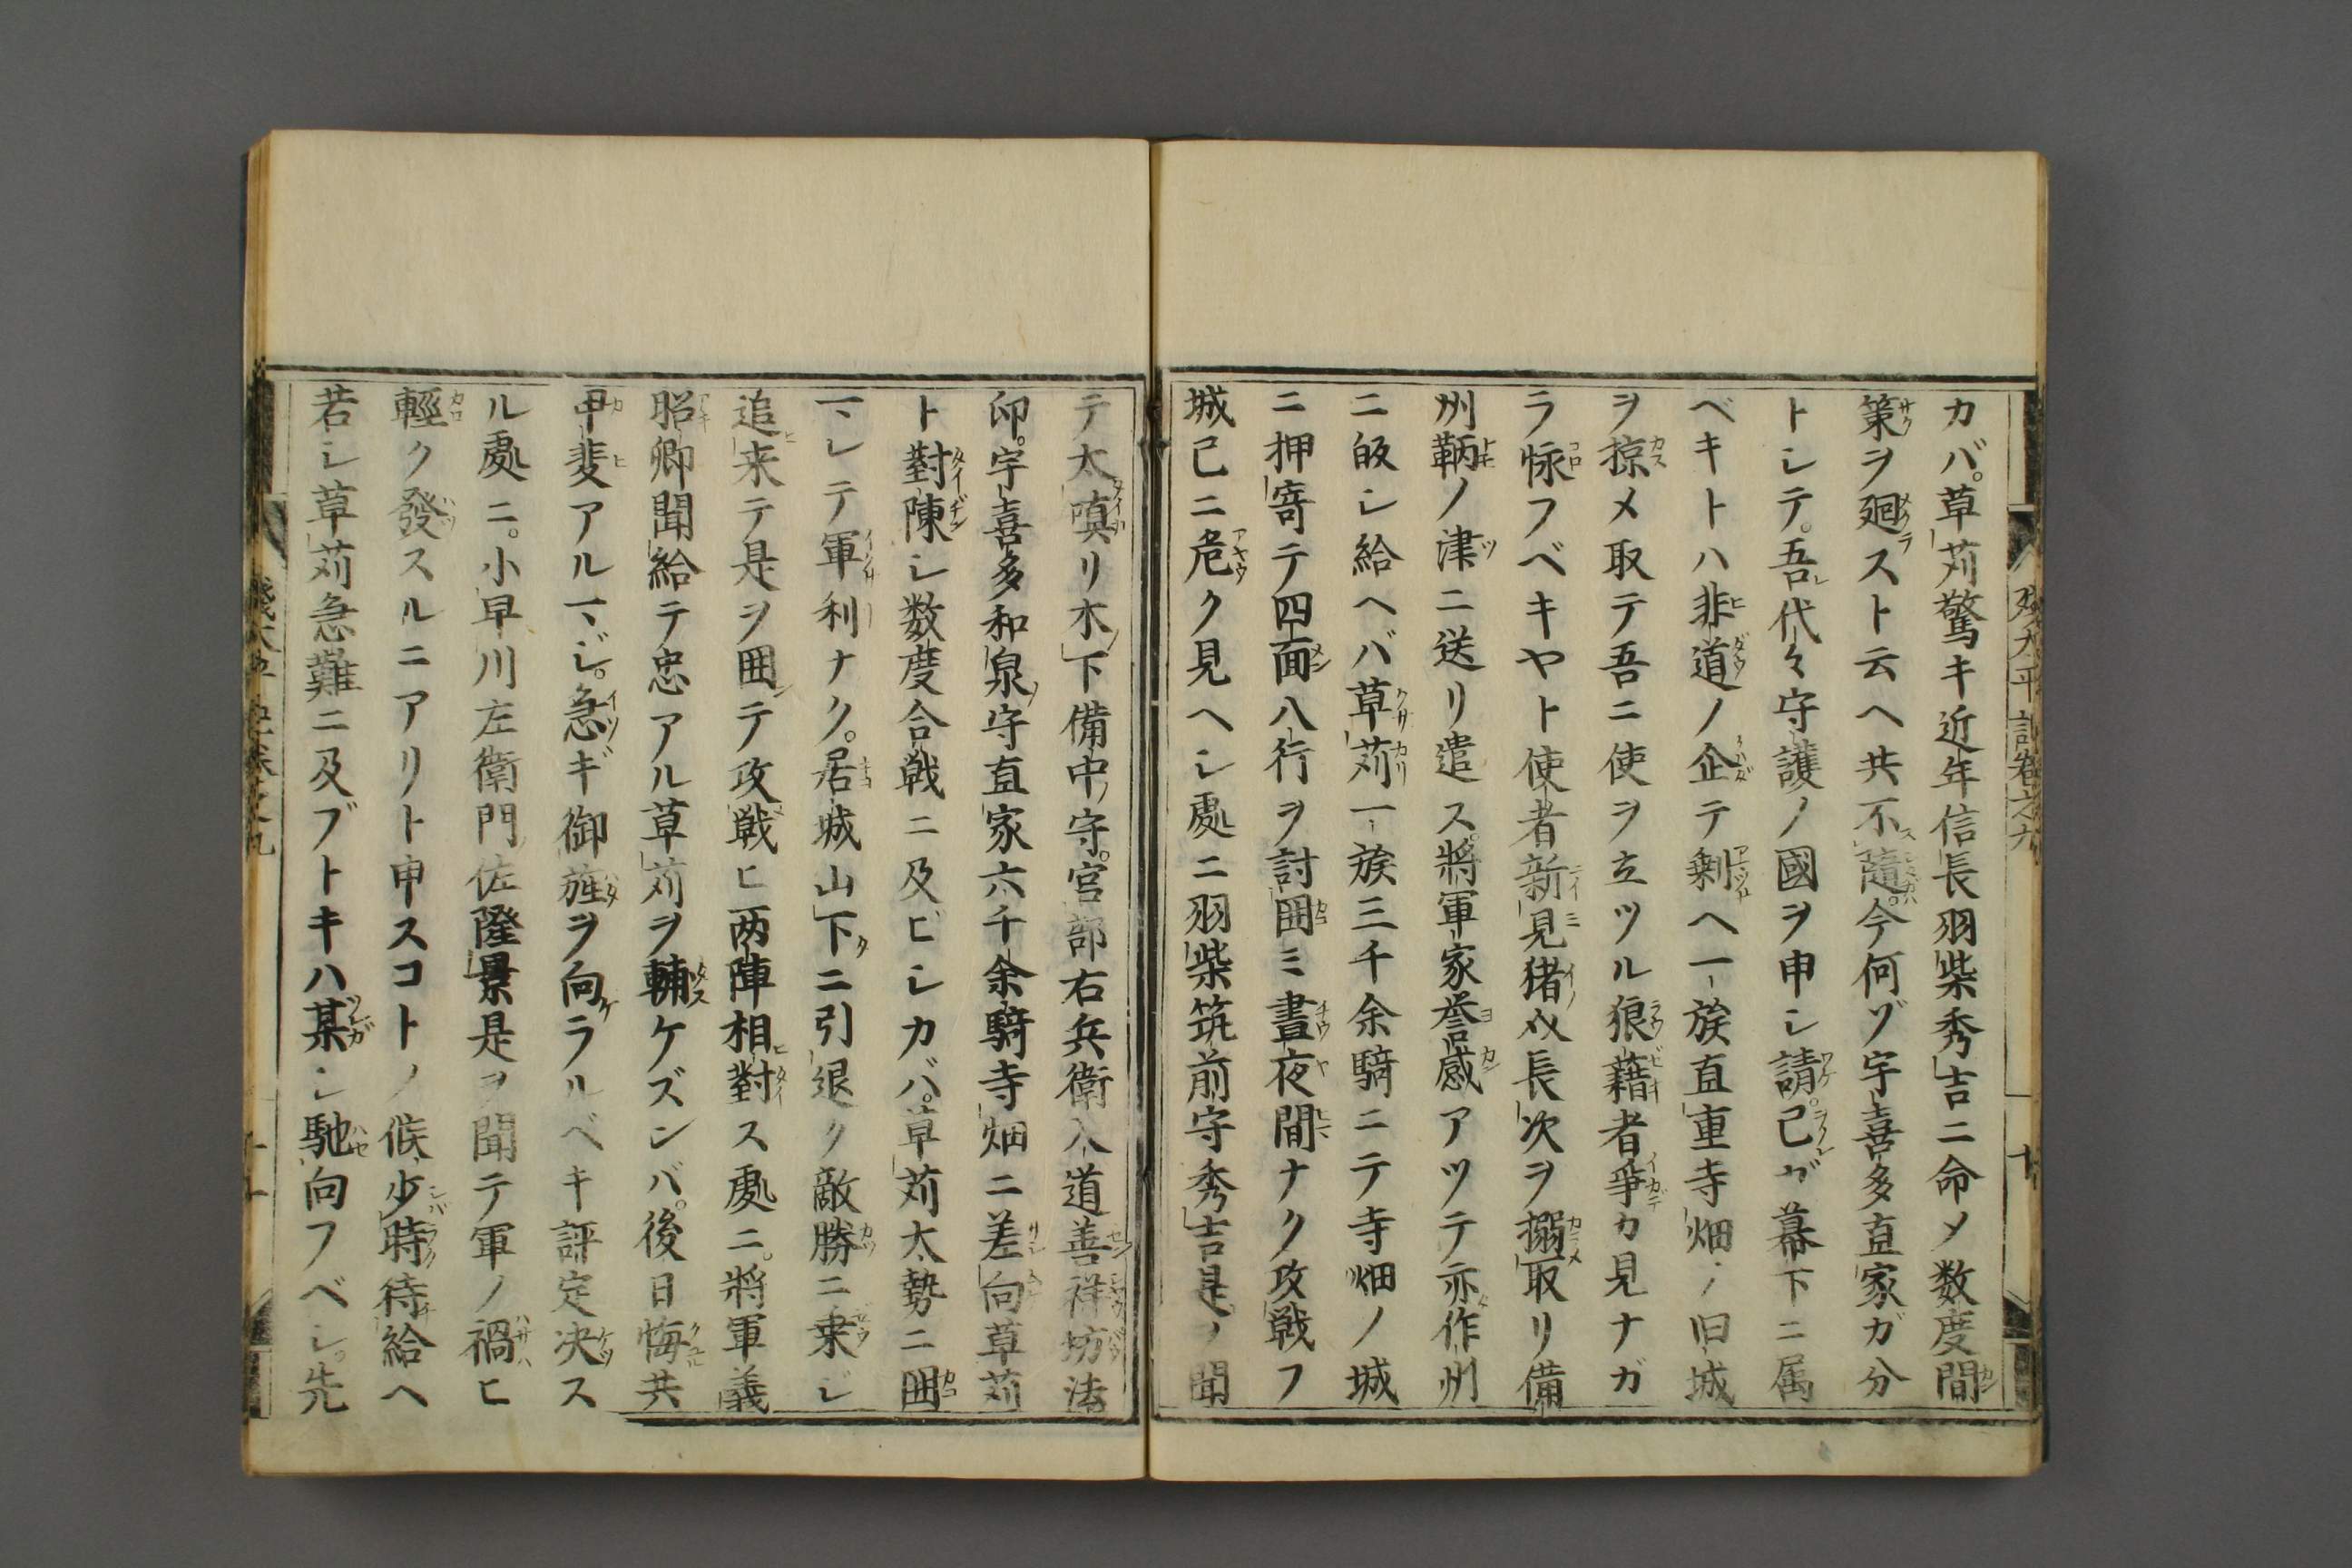 カバ。草苅驚キ近年信長羽柴秀吉ニ命メ数度間
策ヲ廻スト云ヘ共不隨。今何ゾ宇喜多直家ガ分
トシテ。吾代々守護ノ國ヲ申シ請。己ガ幕下ニ属
ベキトハ非道ノ企テ剰ヘ一族直重寺畑ノ旧城
ヲ掠メ取テ吾ニ使ヲ立ツル狼藉者爭カ見ナガ
ラ怺フベキヤト使者新見猪丞長次ヲ搦取リ備
州鞆ノ津ニ送リ遣ス。將軍家誉感アツテ亦作州
ニ皈シ給ヘバ草苅一族三千余騎ニテ寺畑ノ城
ニ押寄テ四面八行ヲ討囲ミ晝夜間ナク攻戦フ
城已ニ危ク見ヘシ處ニ羽柴筑前守秀吉是ノ聞
テ太嗔リ木下備中守。宮部右兵衛入道善祥坊法
印。宇喜多和泉守直家六千余騎寺畑ニ差向草苅
ト對陳シ数度合戦ニ及ビシカバ。草苅太勢ニ囲
マレテ軍利ナク。居城山下ニ引退ク敵勝ニ乗ジ
追来テ是ヲ囲テ攻戦ヒ両陣相對ス處ニ。將軍義
昭卿聞給テ忠アル草苅ヲ輔ケズンバ。後日悔共
甲斐アルマジ。急ギ御旌ヲ向ケラルベキ評定决ス
ル處ニ。小早川左衛門佐隆景是ヲ聞テ軍ノ禍ヒ
輕ク發スルニアリト申スコトノ候少時待給ヘ
若シ草苅急難ニ及ブトキハ某シ馳向フベシ。先
残太平記卷之九
十